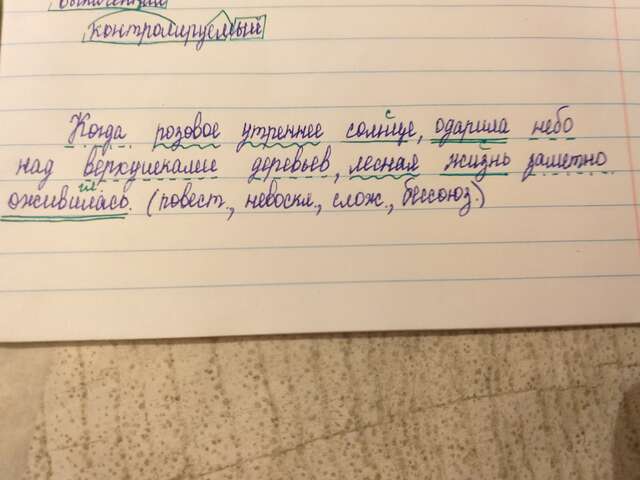 контролируемый
Когда розовое утреннее солнце, одарила небо
над верхушками деревьев, лесная жизнь заметно
оживилась. (повест., невоскл., слож., бессоюз.)